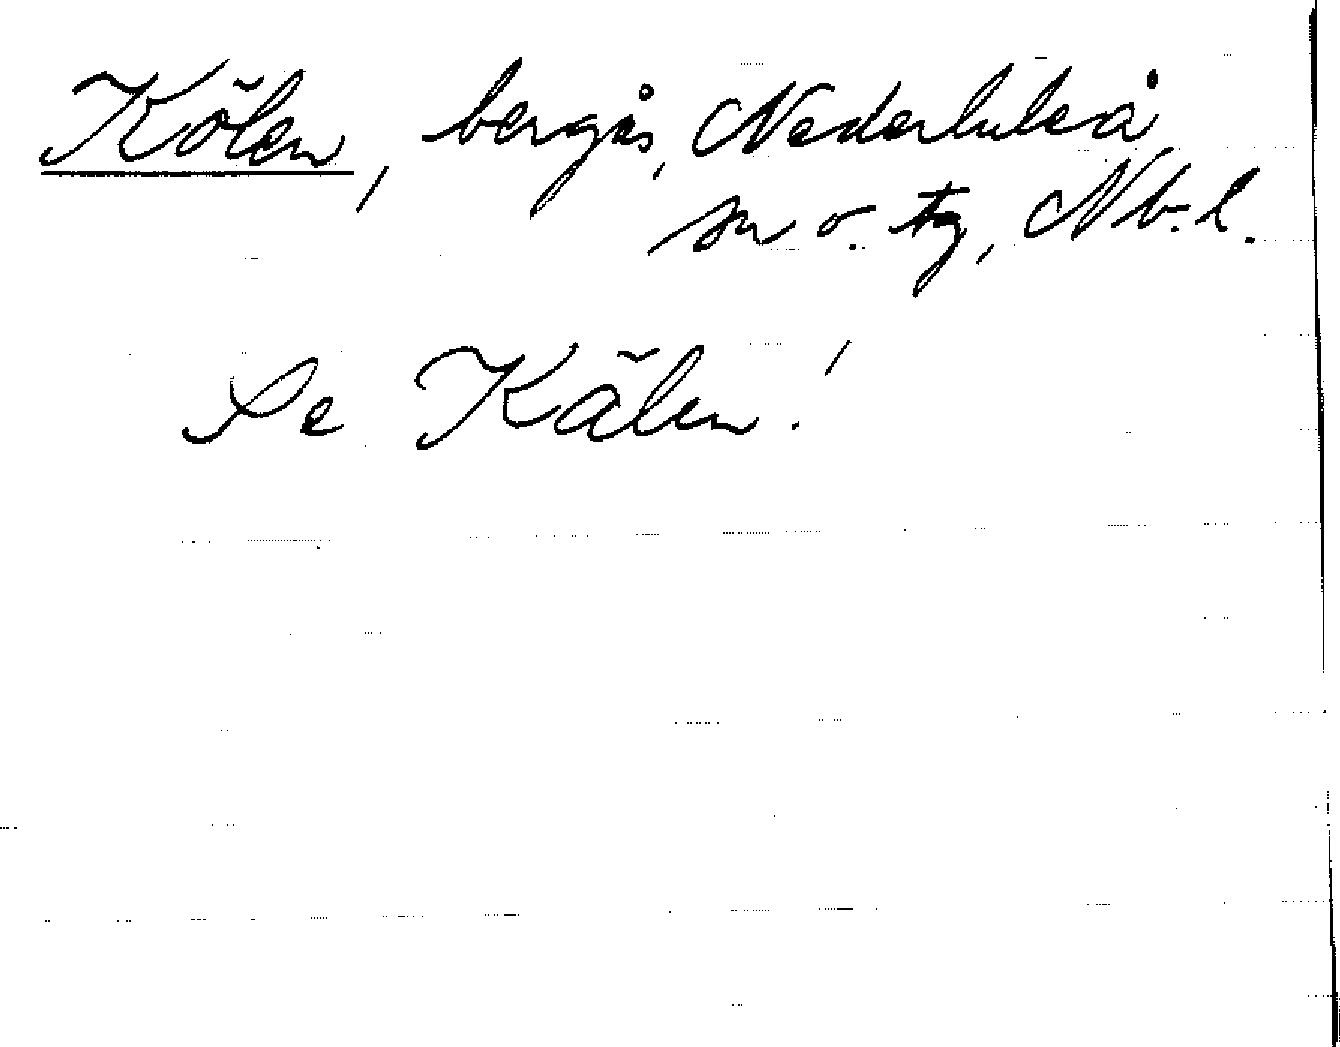 Kölen, bergås, Nederluleå
sn o. tg, Nb. l.
Se Kälen!